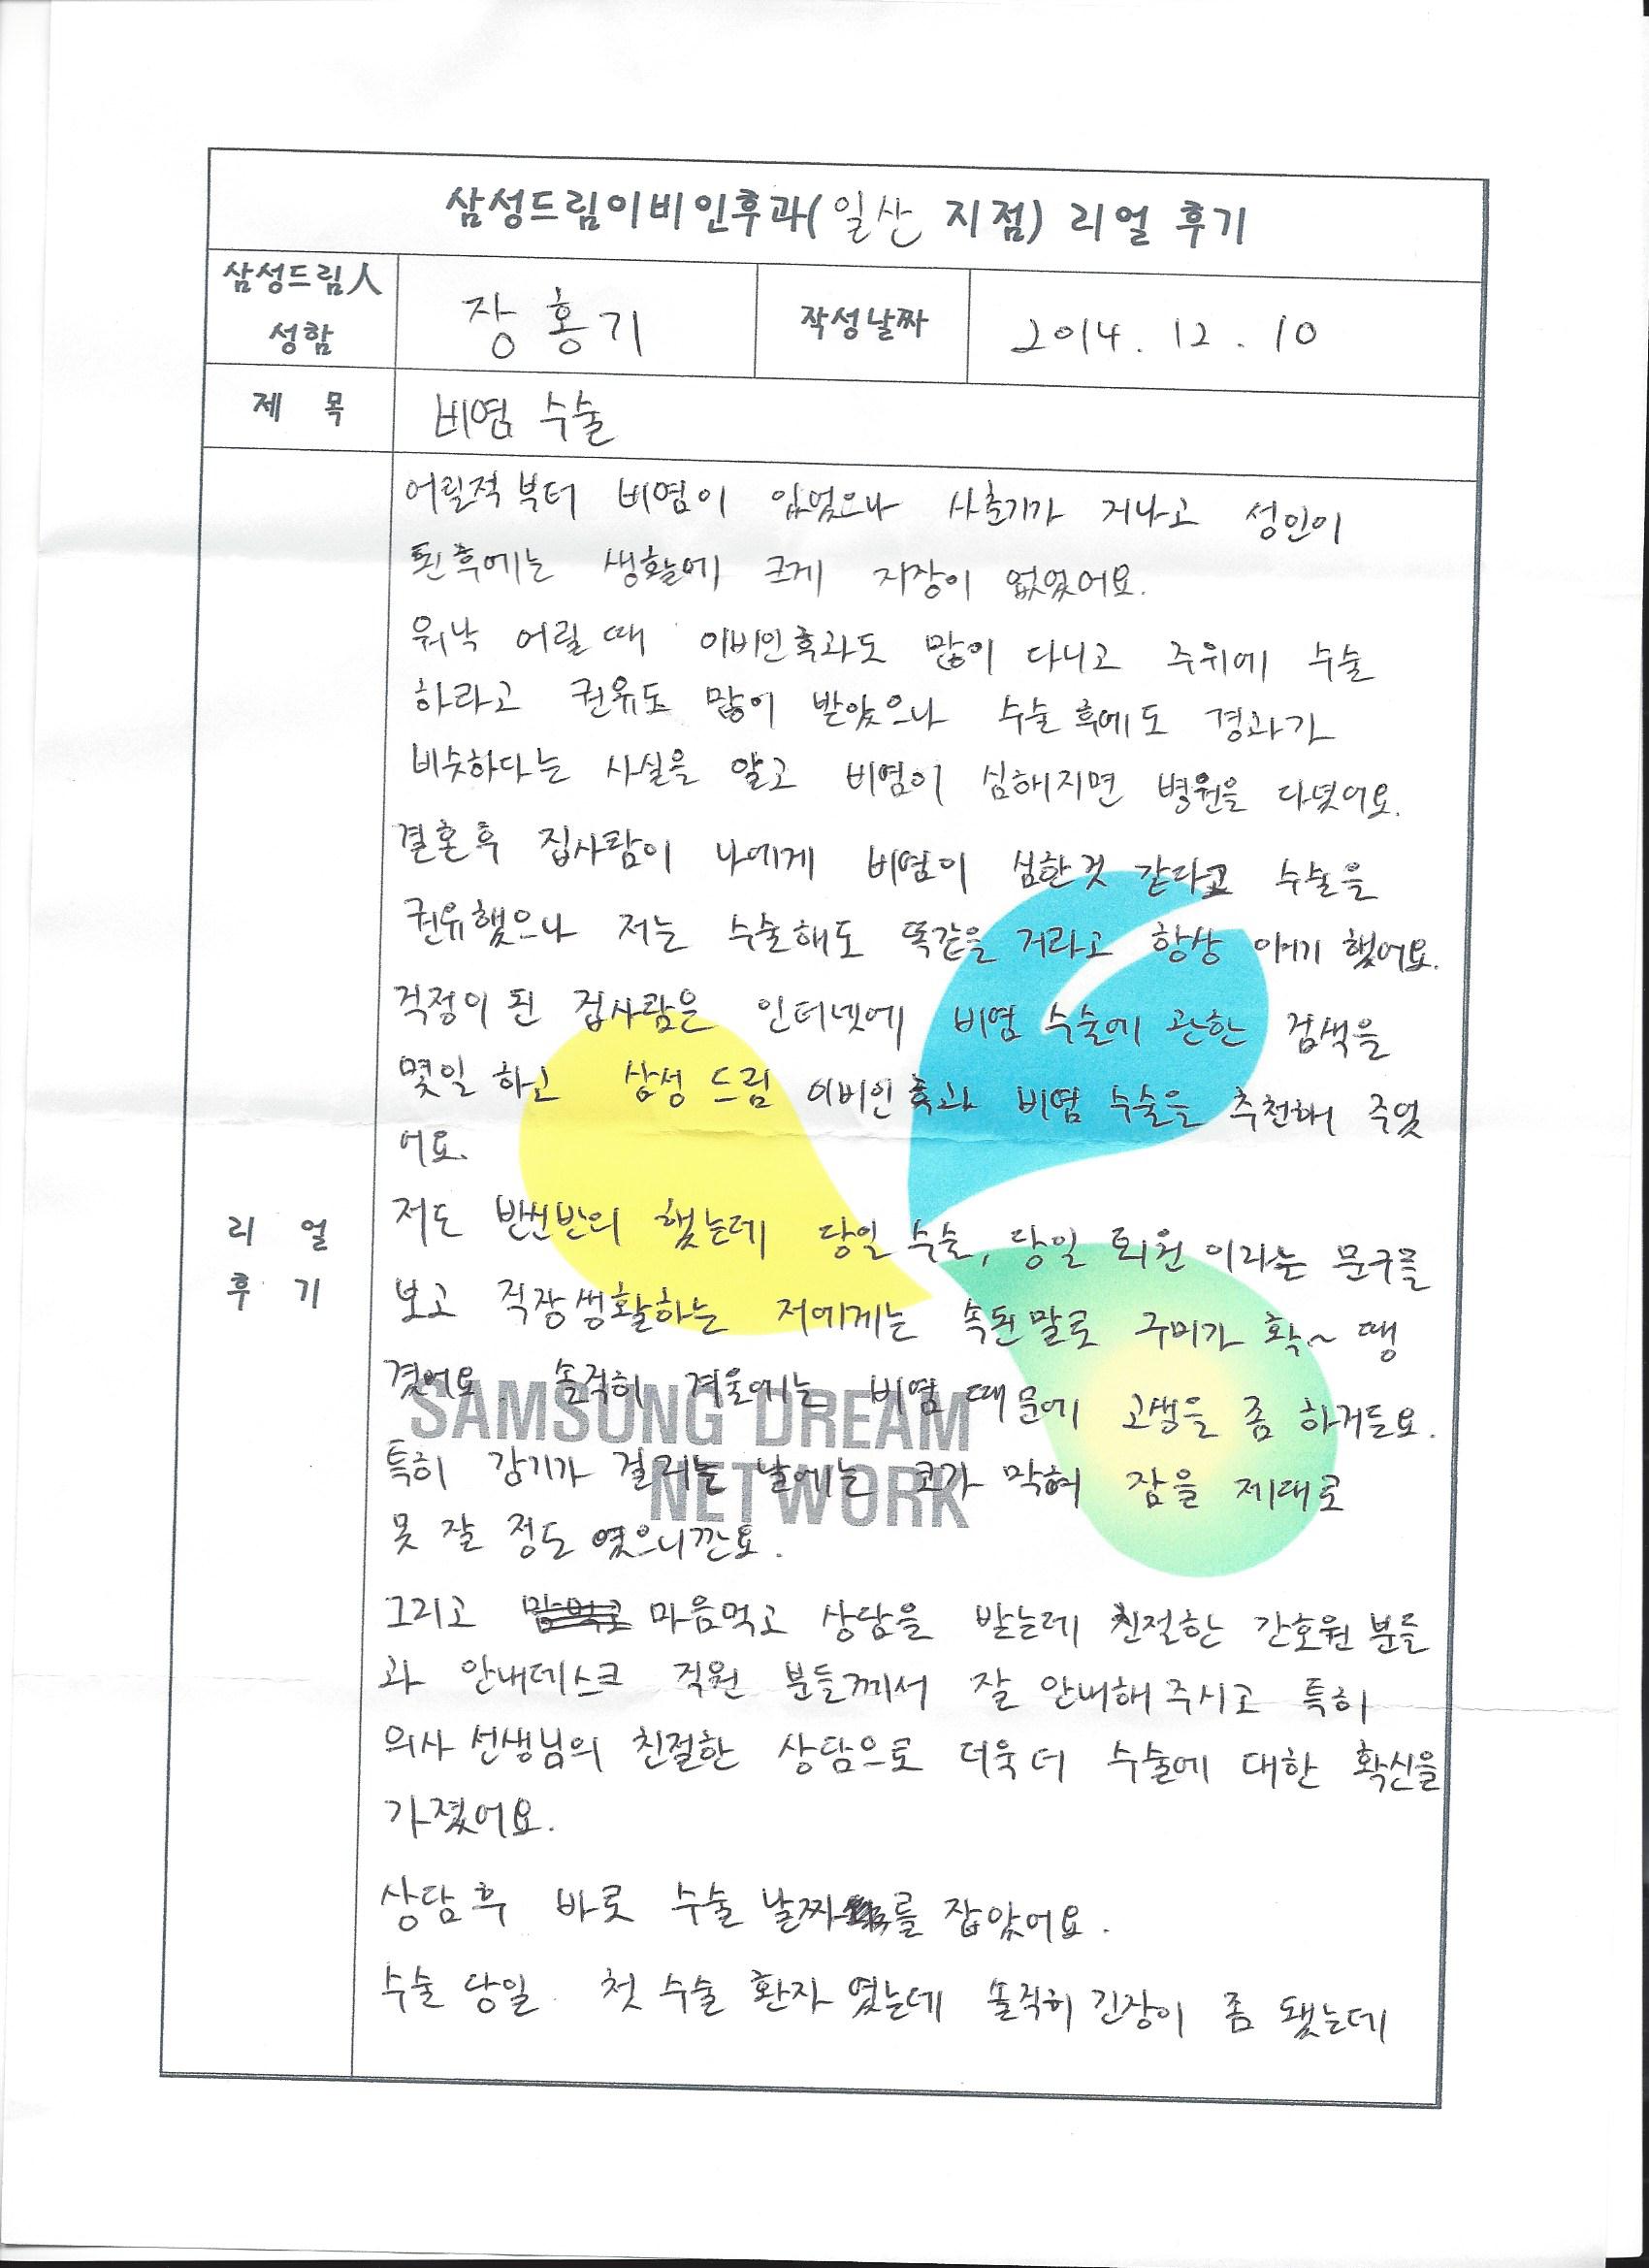 삼성드림이비인후과(일산 지점) 리얼 후기
삼성드림人
성함
장홍기
작성날짜
2014. 12. 10
제 목
비염 수술
리 얼
후 기
어릴적부터 비염이 있었으나 사춘기가 지나고 성인이
된후에는 생활에 크게 지장이 없었어요.
워낙 어릴때 이비인후과도 많이 다니고 주위에 수술
하라고 권유도 많이 받았으나 수술 후에도 경과가
비슷하다는 사실을 알고 비염이 심해지면 병원을 다녔어요.
결혼후 집사람이 나에게 비염이 심한것 같다고 수술을
권유했으나 저는 수술해도 똑같을 거라고 항상 얘기 했어요.
걱정이 된 집사람은 인터넷에 비염 수술에 관한 검색을
몇일 하고 삼성 드림 이비인후과 비염 수술을 추천해 주었
어요.
저도 반신반의 했는데 당일 수술, 당일 퇴원 이라는 문구를
보고 직장생활하는 저에게는 속된말로 구미가 확~ 땡
겼어요. 솔직히 겨울에는 비염 때문에 고생을 좀 하거든요.
특히 감기가 걸리는 날에는 코가 막혀 잠을 제대로
못 잘 정도 였으니깐요.
그리고 마음먹고 상담을 받는데 친절한 간호원 분들
과 안내데스크 직원 분들께서 잘 안내해 주시고 특히
의사 선생님의 친절한 상담으로 더욱더 수술에 대한 확신을
가졌어요.
상담후 바로 수술 날짜를 잡았어요.
수술 당일 첫 수술 환자 였는데 솔직히 긴장이 좀 됐는데
SAMSUNG DREAM
NETWORK